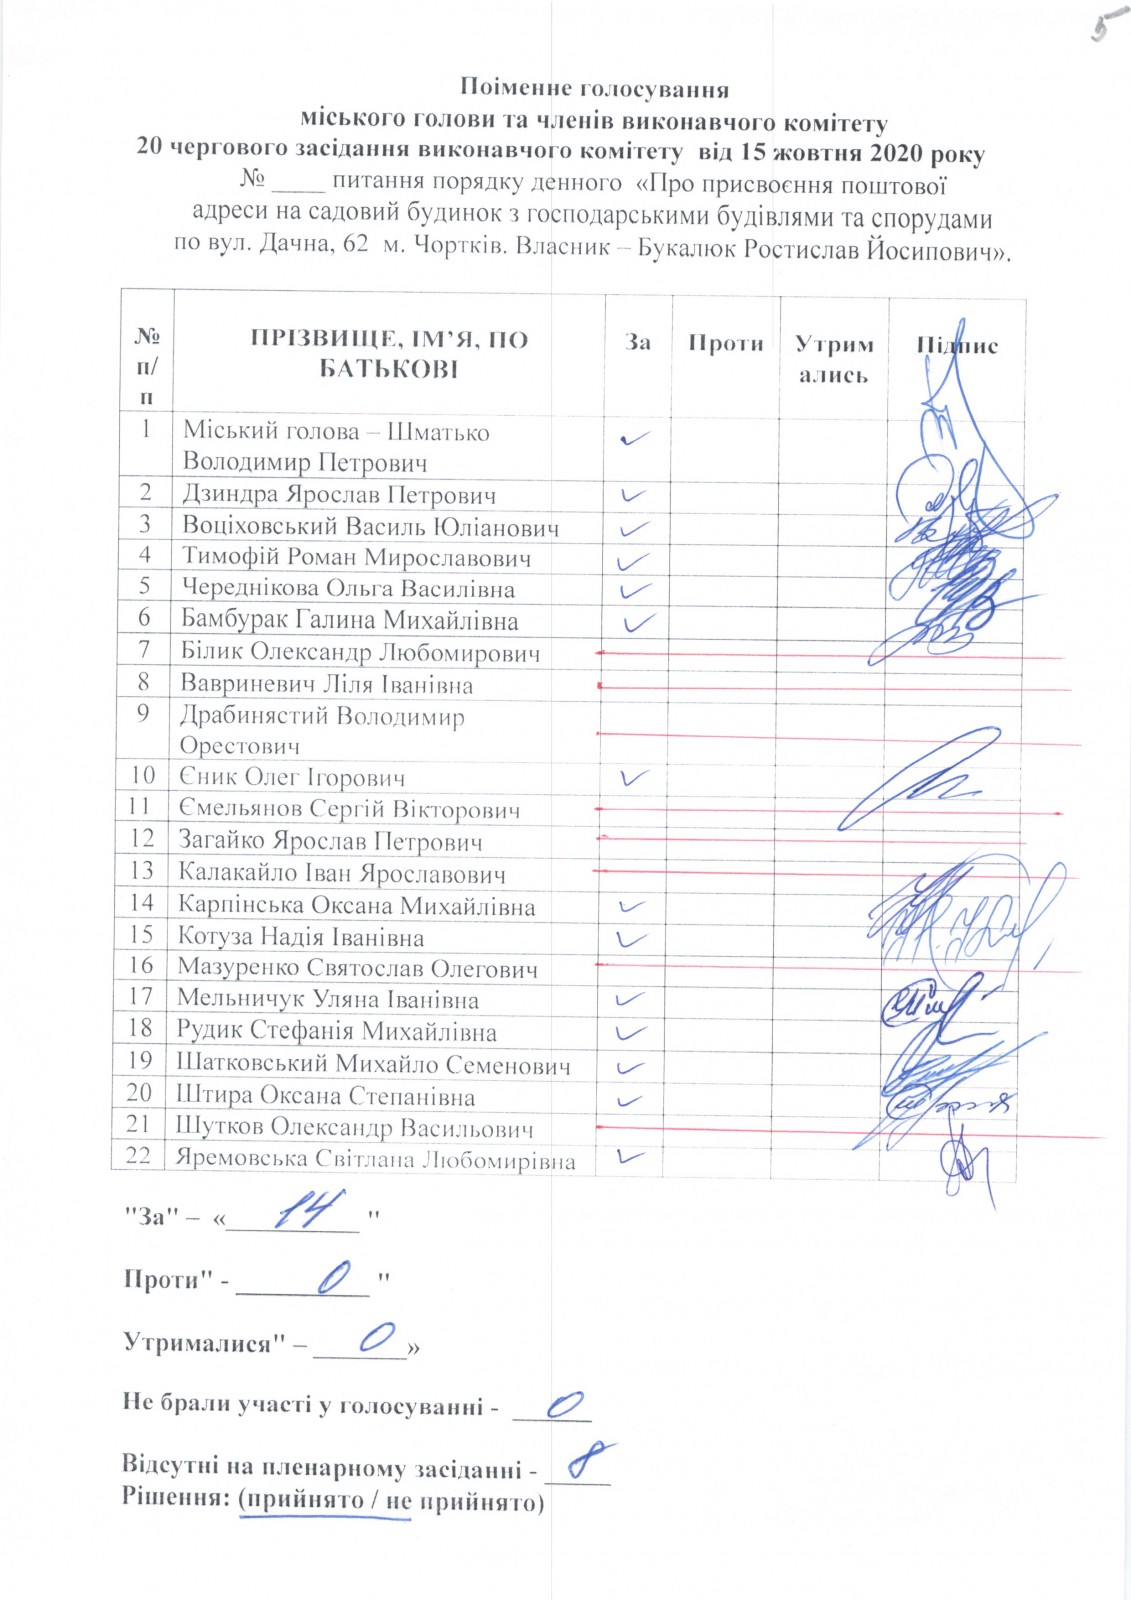 5
Поіменне голосування
міського голови та членів виконавчого комітету
20 чергового засідання виконавчого комітету від 15 жовтня 2020 року
№ ____ питання порядку денного «Про присвоєння поштової
адреси на садовий будинок з господарськими будівлями та спорудами
по вул. Дачна, 62 м. Чортків. Власник – Букалюк Ростислав Йосипович».
№ п/п ПРІЗВИЩЕ, ІМ’Я, ПО БАТЬКОВІ За Проти Утримались Підпис
1 Міський голова – Шматько
Володимир Петрович
2 Дзиндра Ярослав Петрович
3 Воціховський Василь Юліанович
4 Тимофій Роман Мирославович
5 Череднікова Ольга Василівна
6 Бамбурак Галина Михайлівна
7 Білик Олександр Любомирович
8 Вавриневич Ліля Іванівна
9 Драбинястий Володимир
Орестович
10 Єник Олег Ігорович
11 Ємельянов Сергій Вікторович
12 Загайко Ярослав Петрович
13 Калакайло Іван Ярославович
14 Карпінська Оксана Михайлівна
15 Котуза Надія Іванівна
16 Мазуренко Святослав Олегович
17 Мельничук Уляна Іванівна
18 Рудик Стефанія Михайлівна
19 Шатковський Михайло Семенович
20 Штира Оксана Степанівна
21 Шутков Олександр Васильович
22 Яремовська Світлана Любомирівна
"За" – « 14 "
Проти" - 0 "
Утрималися" – 0 »
Не брали участі у голосуванні - 0
Відсутні на пленарному засіданні - 8
Рішення: (прийнято / не прийнято)